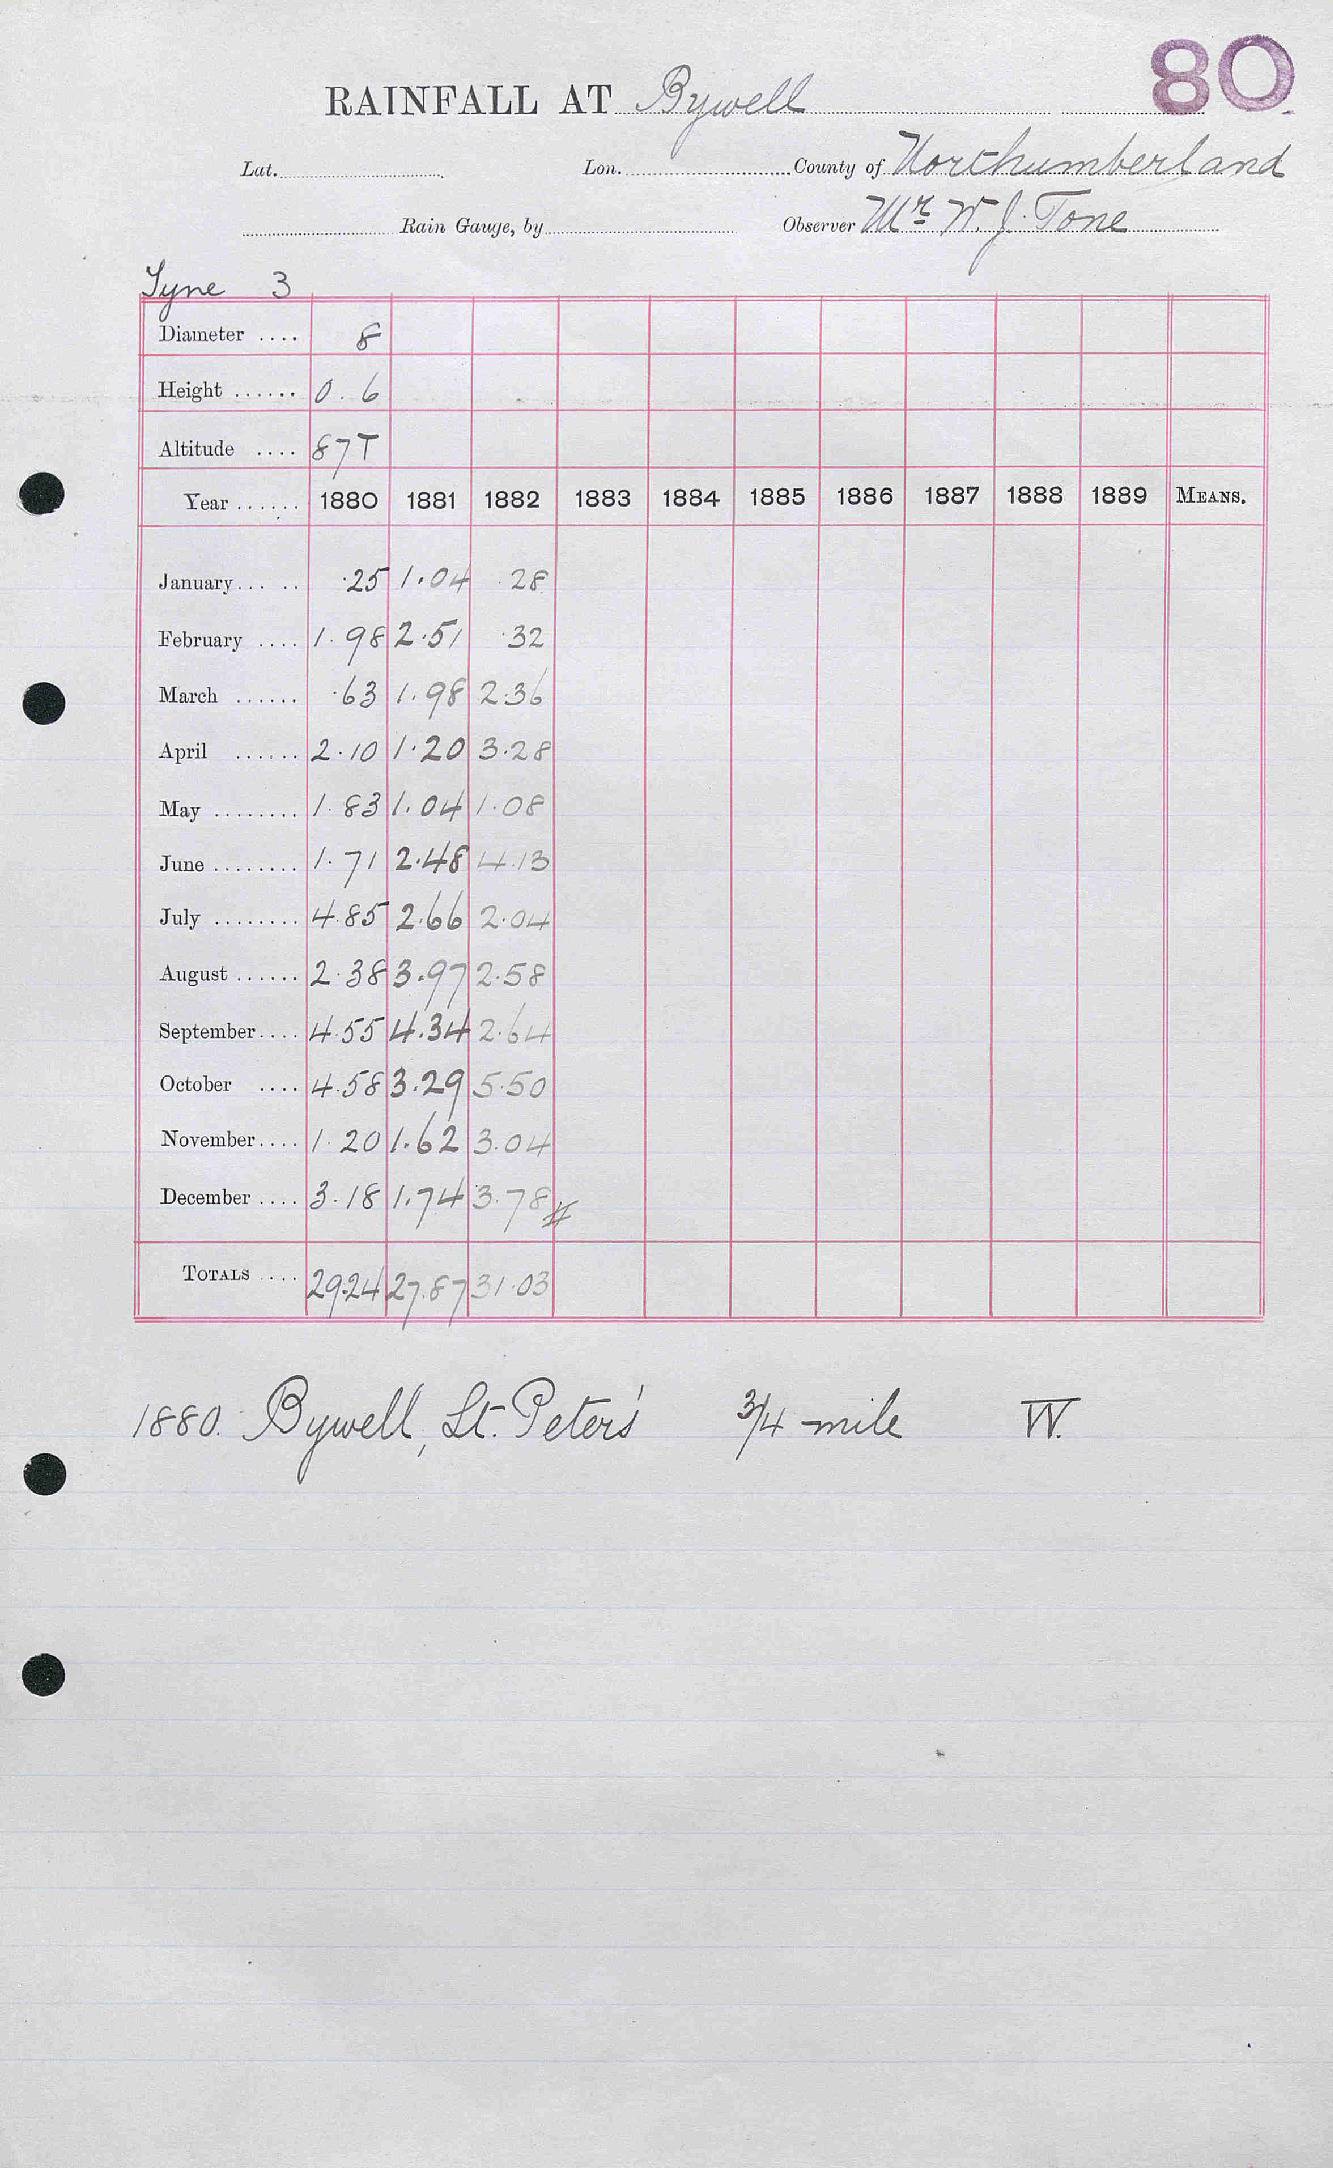 80
RAINFALL AT Bywell
Lat. Lon. County of Northumberland
Rain Gauge, by Observer Mr W. J. Tone
Tyne 3
Diameter .... 8
Height ...... 0.6
Altitude .... 87T
Year ...... 1880 1881 1882 1883 1884 1885 1886 1887 1888 1889 MEANS.
January ..... .25 1.04 .28
February .... 1.98 2.51 .32
March ...... .63 1.98 2.36
April ...... 2.10 1.20 3.28
May ........ 1.83 1.04 1.08
June ........ 1.71 2.48 4.13
July ........ 4.85 2.66 2.04
August ...... 2.38 3.97 2.58
September .... 4.55 4.34 2.64
October .... 4.58 3.29 5.50
November .... 1.20 1.62 3.04
December .... 3.18 1.74 3.78 #
TOTALS .... 29.24 27.87 31.03
1880. Bywell, St. Peter's 3/4 mile W.